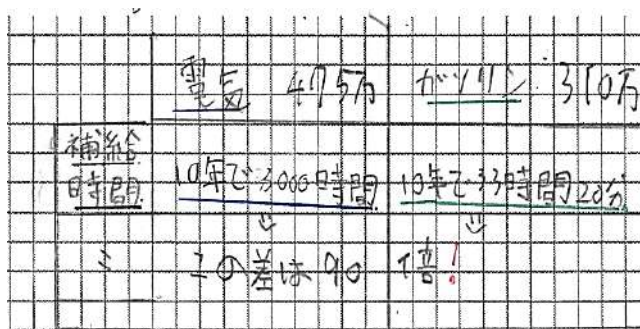 電気 475万 ガソリン 310万
補給時間 10年で3,000時間 10年で33時間20分
⇓ ⇓
この差は90倍!